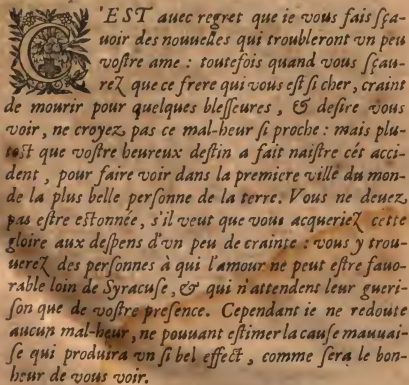 C'EST auec regret que ie vous fais sça-
uoir des nouuelles qui troubleront vn peu
vostre ame : toutefois quand vous sçau-
rez que ce frere qui vous est si cher, craint
de mourir pour quelques blesseures, & desire vous
voir, ne croyez pas ce mal-heur si proche : mais plu-
tost que vostre heureux destin a fait naistre cét acci-
dent, pour faire voir dans la premiere ville du mon-
de la plus belle personne de la terre. Vous ne deuez
pas estre estonnée, s'il veut que vous acqueriez cette
gloire aux despens d'vn peu de crainte : vous y trou-
uerez des personnes à qui l'amour ne peut estre fauo-
rable loin de Syracuse, & qui n'attendent leur gueri-
son que de vostre presence. Cependant ie ne redoute
aucun mal-heur, ne pouuant estimer la cause mauuai-
se qui produira vn si bel effect, comme sera le bon-
heur de vous voir.